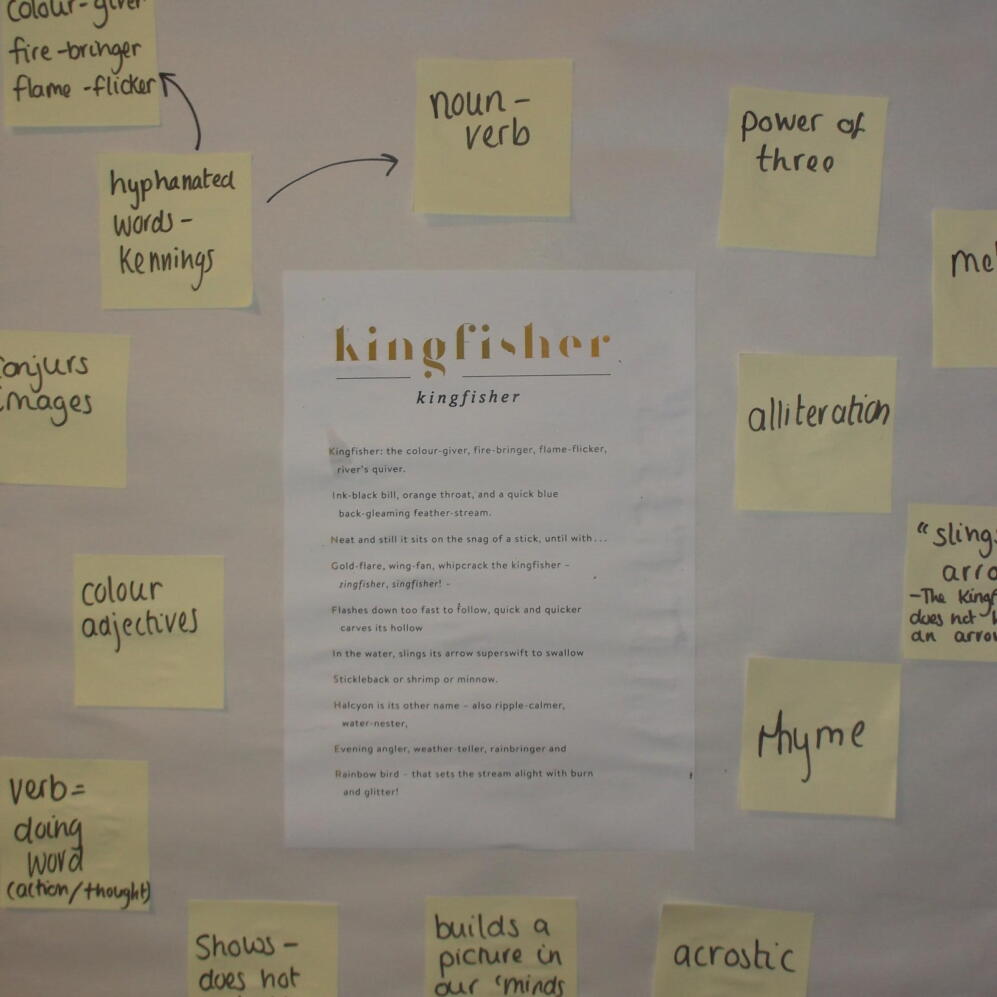 colour-giver
fire-bringer
flame-flicker
noun-
verb
power of
three
hyphanated
words-
Kennings
kingfisher
kingfisher
Kingfisher: the colour-giver, fire-bringer, flame-flicker,
river's quiver.
Ink-black bill, orange throat, and a quick blue
back-gleaming feather-stream.
Neat and still it sits on the snag of a stick, until with...
Gold-flare, wing-fan, whipcrack the kingfisher –
zingfisher, singfisher! –
Flashes down too fast to follow, quick and quicker
carves its hollow
In the water, slings its arrow superswift to swallow
Stickleback or shrimp or minnow.
Halcyon is its other name – also ripple-calmer,
water-nester,
Evening angler, weather-teller, rainbringer and
Rainbow bird – that sets the stream alight with burn
and glitter!
images
alliteration
"slings
-The
does not
an arrow
colour
adjectives
rhyme
verb=
doing
word
(action/thought)
Shows-
does not
builds a
picture in
our 'minds
acrostic